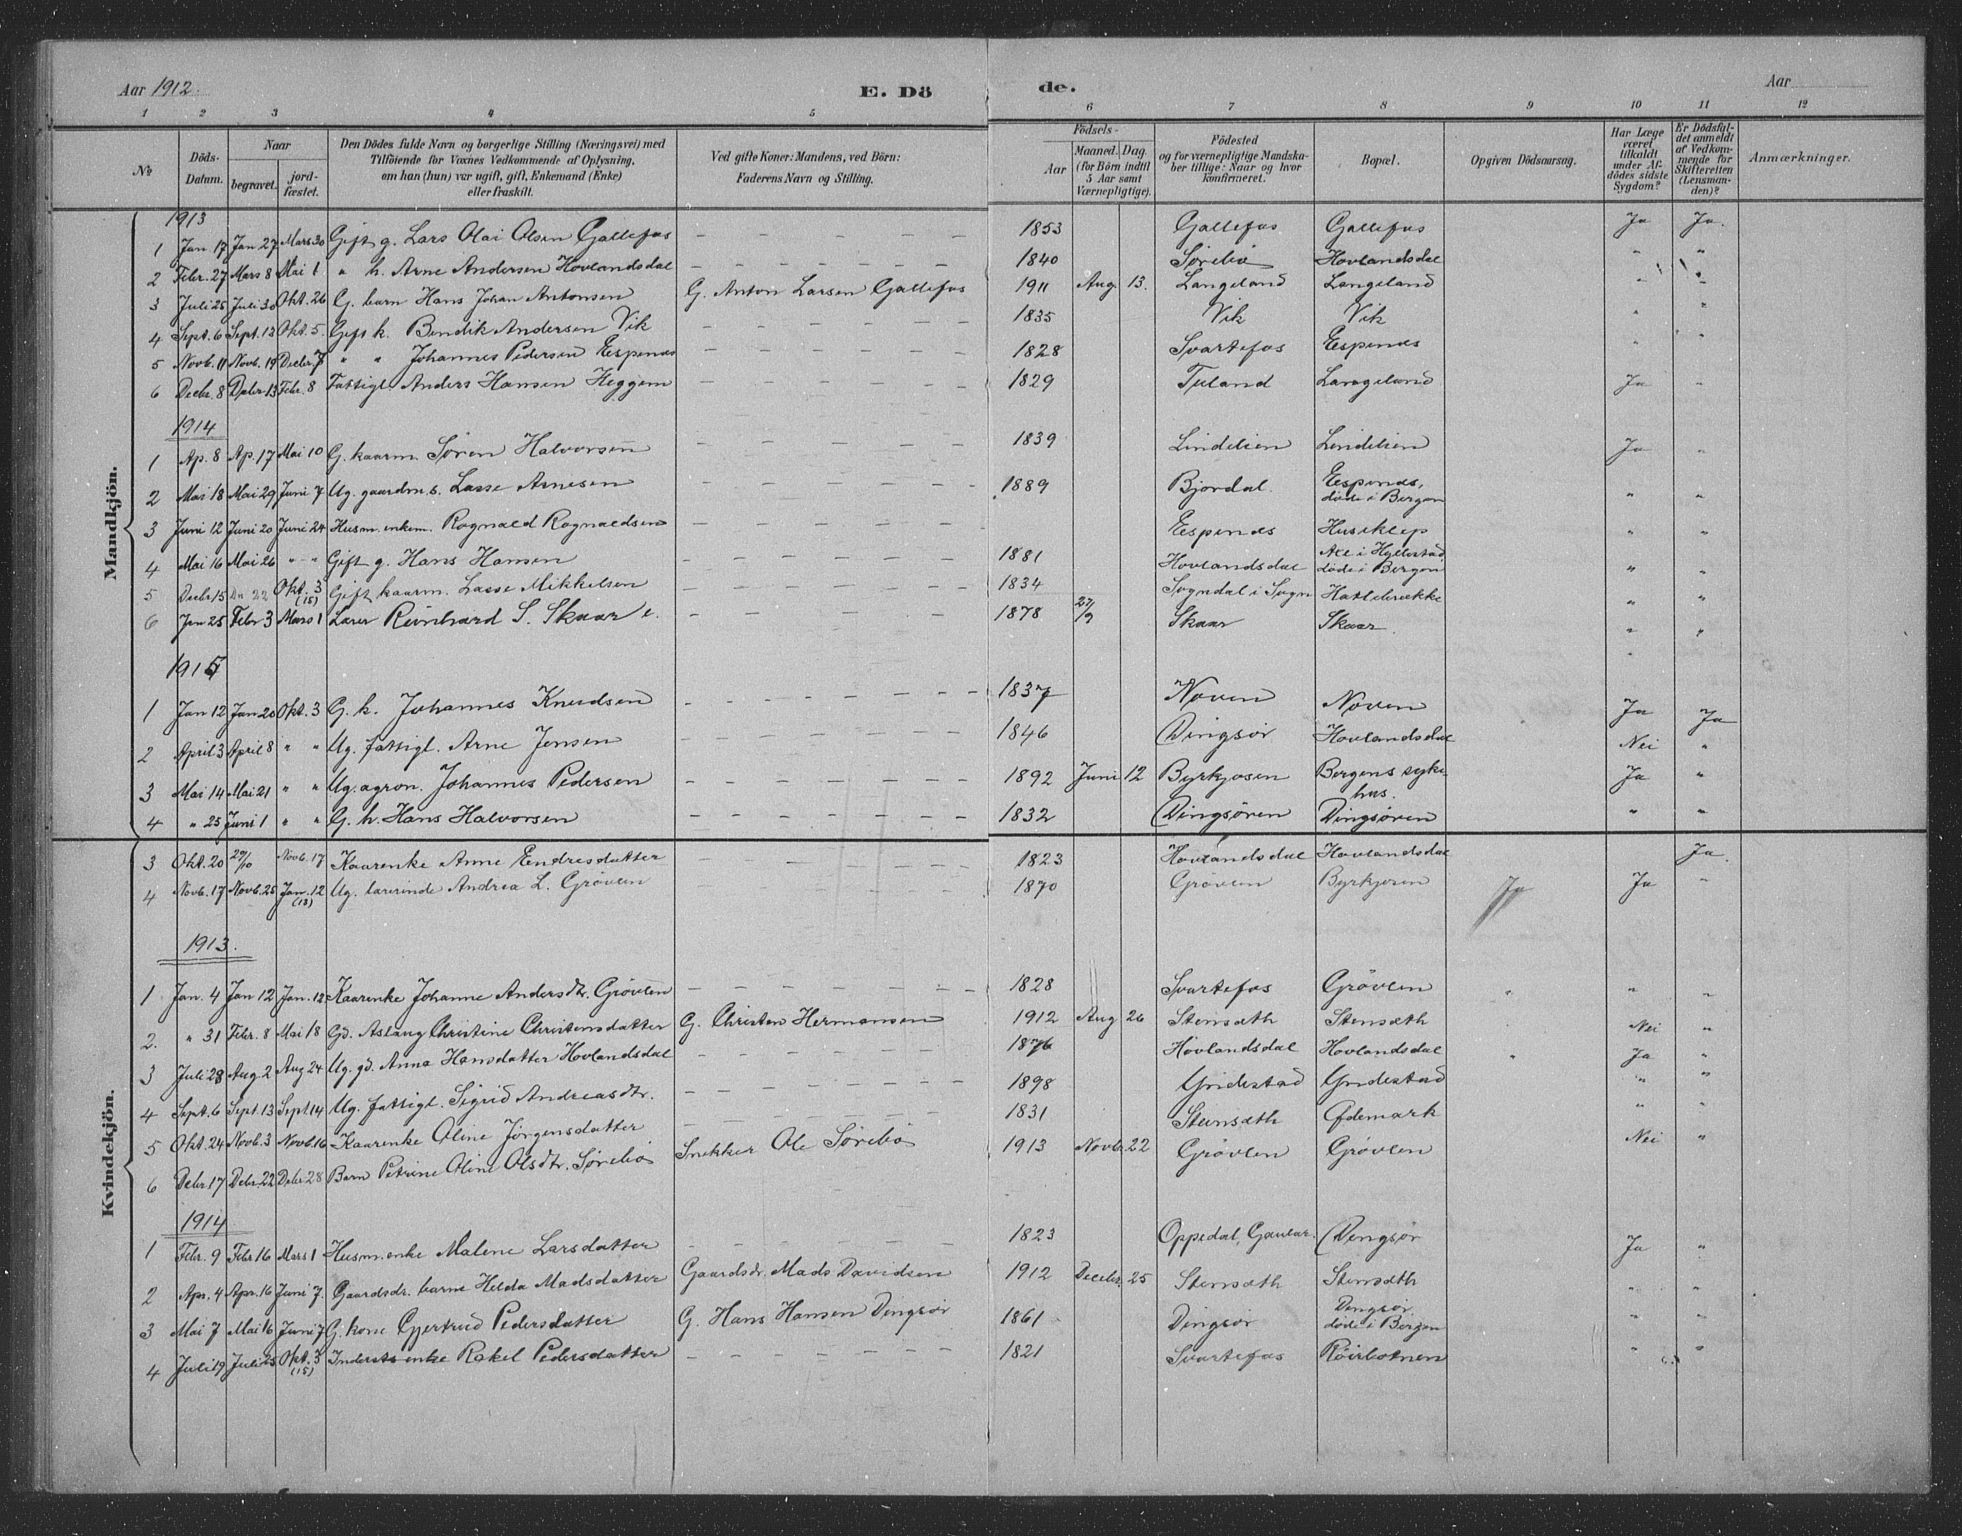 Aar 1912. E. Dö de. Aar
1 2 3 4 5 6 7 8 9 10 11 12
No. Döds-Datum. Naar begravet. jord-fæstet. Den Dödes fulde Navn og borgerlige Stilling (Næringsvei) med Tilföiende for Voxnes Vedkommende af Oplysning, om han (hun) var ugift, gift, Enkemand (Enke) eller fraskilt. Ved gifte Koner: Mandens, ved Börn: Faderens Navn og Stilling. Födsels- Aar Maaned. Dag. (for Börn indtil 5 Aar samt Værnepligtige). Födested og for værnepligtige Mandska-ber tillige: Naar og hvor konfirmeret. Bopæl. Opgiven Dödsaarsag. Har Læge været tilkaldt under Af-dödes sidste Sygdom? Er Dödsfal-det anmeldt af Vedkom-mende for Skifteretten (Lensman-den)? Anmærkninger.
Mandkjön.
1913
1 Jan 17 Jan 27 Mars 30 Gift g. Lars Olai Olsen Gallefos – 1853 Gallefos Gallefos Ja Ja.
2 Febr. 27 Mars 8 Mai 1 " h. Arne Andersen Hovlandsdal – 1840 Sørebø Hovlandsdal " "
3 Juli 25 Juli 30 Okt. 26 G. barn Hans Johan Antonsen G. Anton Larsen Gallefos 1911 Aug 13. Langeland Langeland " "
4 Sept. 6 Sept. 13 Okt. 5. Gift k. Bendik Andersen Vik – 1835 Vik Vik " "
5 Novb. 11 Novb. 19 Decbr. 7 " " Johannes Pedersen Espenes – 1828 Svartefos Espenes " "
6 Decbr. 8 Debr 13 Febr. 8 Fattigl. Anders Hansen Heggem – 1829 Tuland Langeland Ja "
1914
1 Ap. 8 Ap. 17 Mai 10 G. kaarm. Søren Halvorsen – 1839 Lindelien Lindelien Ja "
2 Mai 18 Mai 29 Juni 7 Ug. gaardm.s. Lasse Arnesen – 1889 Bjordal. Espenes, døde i Bergen " "
3 Juni 12 Juni 20 Juni 24 Husm. enkem. Rognald Rognaldsen – Espenes Husiklep " "
4 Mai 16 Mai 26 " " Gift g. Hans Hansen 1881 Hovlandsdal Axe i Hyllestad døde i Bergen " "
5 Decbr 15 De 22 Okt. 3 (15) Gift kaarm. Lasse Mikkelsen – 1834 Sogndal i Sogn Hatlebrække " "
6 Jan 25 Febr 3 Mars 1 Lærer Reinhard S. Skaar – 1878 27/9 Skaar Skaar. " "
1915
1 Jan 12 Jan 20 Okt. 3 G. k. Johannes Knudsen – 1837 Noven Noven Ja Ja
2 April 3 April 8 " " Ug. fattigl. Arne Jensen – 1846 Dingsør Hovlandsdal Nei "
3 Mai 14 Mai 21 " " Ug. agron. Johannes Pedersen – 1892 Juni 12 Byrkjosen Bergens sykehus. Ja "
4 " 25 Juni 1 " " G. h. Hans Halvorsen – 1832 Dingsøren Dingsøren " "
Kvindekjön.
3 Okt. 20 29/10 Novb. 17 Kaarenke Anne Endresdatter – 1823 Hovlandsdal Hovlandsdal Ja.
4 Novb. 17 Novb. 25 Jan. 12 (13) Ug. lærerinde Andrea L. Grøvlen 1870 Grøvlen Byrkjosen Ja Ja "
1913.
1 Jan. 4 Jan 12 Jan. 12 Kaarenke Johanne Andersdtr. Grøvlen – 1828 Svartefos Grøvlen " " "
2. " 31 Febr. 8 Mai 18 Gd. Aslaug Christine Christensdatter G. Christen Hermansen 1912 Aug 26 Stensæth Stensæth Nei "
3 Juli 28 Aug. 2 Aug 24 Ug. gd. Anna Hansdatter Hovlandsdal – 1876 Hovlandsdal Hovlandsdal " Ja "
4 Sept. 6 Sept. 13 Sept. 14 Ug. fattigl. Sigrid Andreasdtr. – 1898 Gridestad Gridestad " "
5 Okt. 24 Novb. 3 Novb. 16 Kaarenke Oline Jørgensdatter – 1831 Stensæth Ødemark " "
6 Debr. 17 Debr. 22 Debr. 28 Barn Petrine Oline Olsdtr. Sørebø Snekker Ole Sørebø 1913 Novb. 22 Grøvlen Grøvlen Nei "
1914
1 Febr. 9 Febr 16 Mars 1 Husm. enke Malene Larsdatter – 1823 Oppedal, Gaular. Dingsør Ja "
2 Apr. 4 Apr. 16 Juni 7. Gaardsdr. barne Helda Madsdatter Gaardsdr. Mads Davidsen 1912 Decbr. 25 Stensæth Stensæth " "
3 Mai 7 Mai 16 Juni 7 G. kone Gjertrud Pedersdatter G. Hans Hansen Dingsør 1861 Dingsør Dingsør. døde i Bergen " "
4 Juli 19 Juli 25 Okt. 3 (15) Inderstsenke Rakel Pedersdatter – 1821 Svartefos Röirbotnen " "